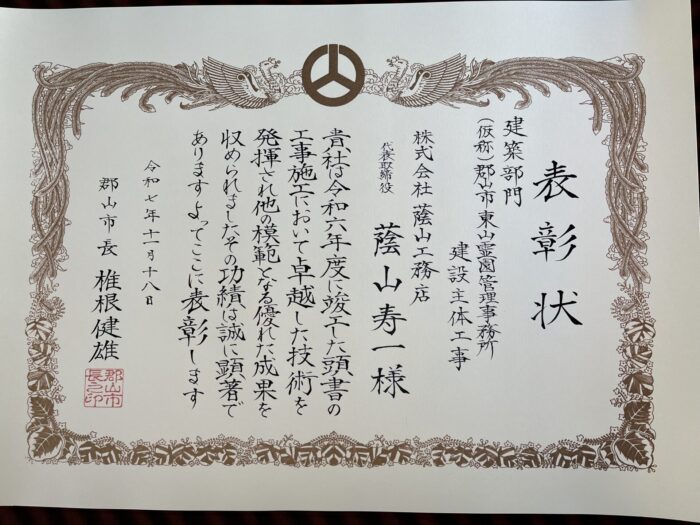 表彰状
建築部門
(仮称)郡山市東山霊園管理事務所
建設主体工事
株式会社 蔭山工務店
代表取締役
蔭山寿一様
貴社は令和六年度に竣工した頭書の
工事施工において卓越した技術を
発揮され他の模範となる優れた成果を
収められましたその功績は誠に顕著で
ありますよってここに表彰します
令和七年十一月十八日
郡山市長 椎根健雄
郡山市
長之印